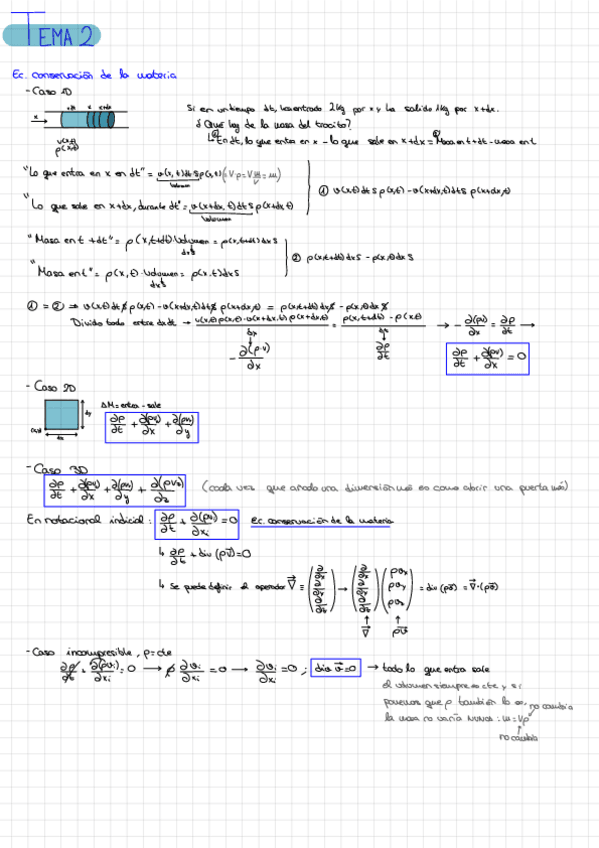 TEMA 2
Ec. conservación de la materia
- Caso 1D
x
Si en un tiempo dt, han entrado 2kg por x y ha salido 1kg por x+dx.
¿Qué hay de la masa del trocito?
↳ En dt, lo que entra en x - lo que sale en x+dx = Masa en t+dt - masa en t
v(x,t)
ρ(x,t)
"Lo que entra en x en dt" = v(x,t)dt S ρ(x,t) (= V·ρ = V m/V = m)
Volumen
① v(x,t)dt S ρ(x,t) - v(x+dx,t)dt S ρ(x+dx,t)
"Lo que sale en x+dx, durante dt" = v(x+dx,t)dt S ρ(x+dx,t)
Volumen
"Masa en t+dt" = ρ(x,t+dt)·Volumen = ρ(x,t+dt)dx S
dxS
② ρ(x,t+dt)dx S - ρ(x,t)dx S
"Masa en t" = ρ(x,t)·Volumen = ρ(x,t)dx S
dxS
① = ② ⇒ v(x,t)dt S ρ(x,t) - v(x+dx,t)dt S ρ(x+dx,t) = ρ(x,t+dt)dx S - ρ(x,t)dx S
Divido todo entre dxdt → v(x,t)ρ(x,t) - v(x+dx,t)ρ(x+dx,t)/dx = ρ(x,t+dt) - ρ(x,t)/dt → -∂(ρv)/∂x = ∂ρ/∂t →
-∂(ρ·v)/∂x
∂ρ/∂t
∂ρ/∂t + ∂(ρv)/∂x = 0
- Caso 2D
ΔM = entra - sale
dy
dx
∂ρ/∂t + ∂(ρvx)/∂x + ∂(ρvy)/∂y
- Caso 3D
∂ρ/∂t + ∂(ρvx)/∂x + ∂(ρvy)/∂y + ∂(ρvz)/∂z (cada vez que añado una dimensión más es como abrir una puerta más)
En notacional indicial: ∂ρ/∂t + ∂(ρvi)/∂xi = 0 Ec. conservación de la materia
↳ ∂ρ/∂t + div(ρv⃗) = 0
↳ Se puede definir el operador ∇⃗ ≡ (∂/∂x ∂/∂y ∂/∂z) → (∂/∂x ∂/∂y ∂/∂z)(ρvx ρvy ρvz) = div(ρv⃗) = ∇⃗·(ρv⃗)
∇⃗ ρv⃗
- Caso incompresible, ρ=cte
∂ρ/∂t + ∂(ρvi)/∂xi = 0 → ρ ∂vi/∂xi = 0 → ∂vi/∂xi = 0 ; div v⃗ = 0 → todo lo que entra sale
el volumen siempre es cte, y si
ponemos que ρ también lo es, no cambia
la masa no varía NUNCA : m = Vρ
no cambia